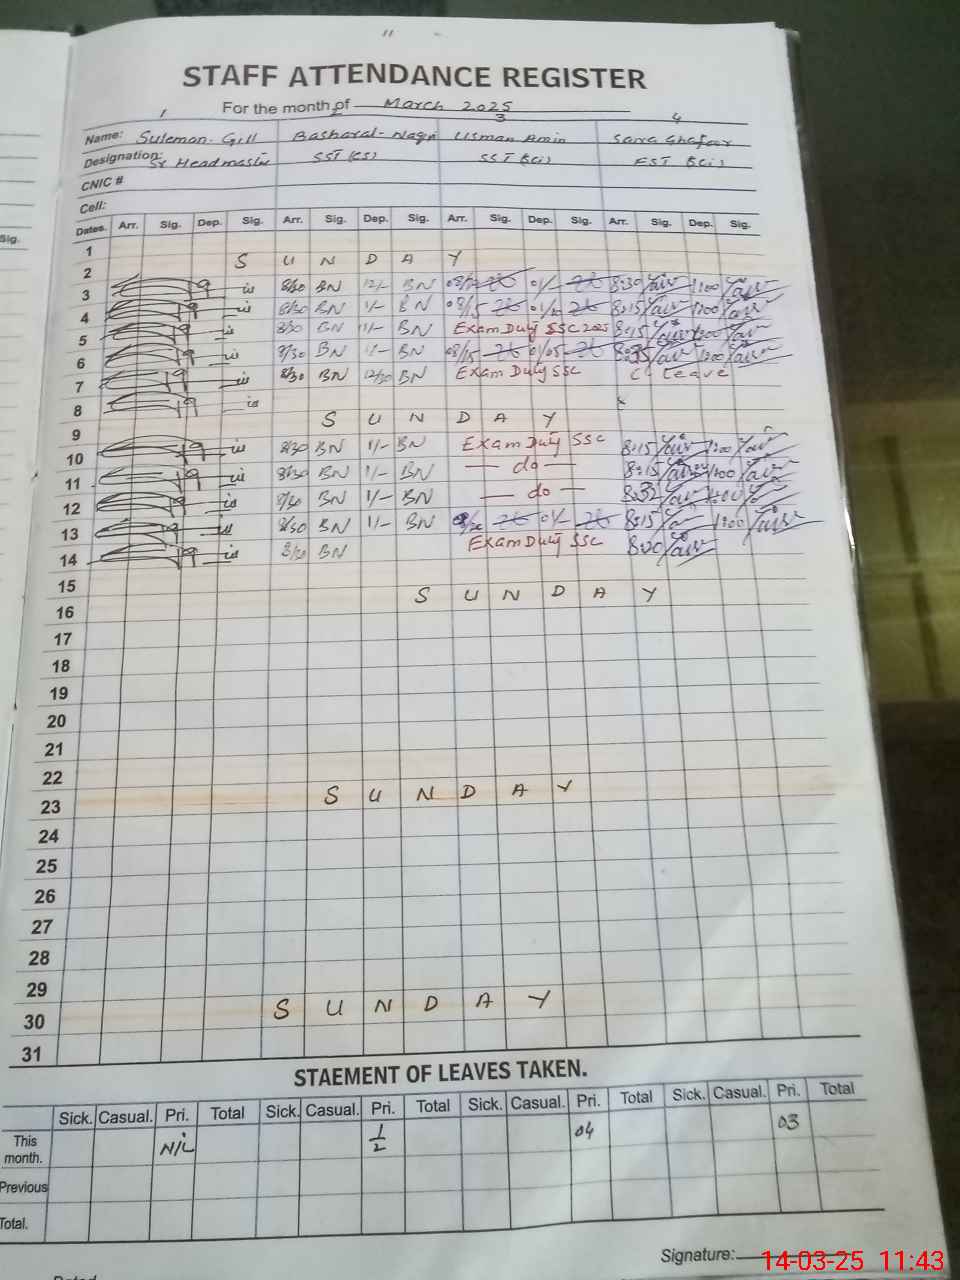 STAFF ATTENDANCE REGISTER
For the month of March 2025
1 2 3 4
Name: Suleman Gill Basharat Usman Amin Sana Ghafoor
Designation: Sr Headmaster SST (CS) SST (Sci) EST (Sci)
CNIC #
Cell:
Dates. Arr. Sig. Dep. Sig. Arr. Sig. Dep. Sig. Arr. Sig. Dep. Sig. Arr. Sig. Dep. Sig.
Sig.
1
2 S U N D A Y
3 8/30 BN 12/- BN 8:30 1200
4 8/30 BN 1/- BN 08/15 8:15 1200
5 8/30 BN 1/- BN Exam Duty SSC 2025 8:15 1200
6 8/30 BN 1/- BN 08/15 01/05 8:35 1200
7 8/30 BN 12/30 BN Exam Duty SSC C. Leave
8
9 S U N D A Y
10 8/30 BN 1/- BN Exam Duty SSC 8:15 1200
11 8/30 BN 1/- BN do 8:15 1200
12 8/30 BN 1/- BN do 8:32 1200
13 8/30 BN 1/- BN 01/- 8:15 1200
14 8/30 BN Exam Duty SSC 8:20
15
16 S U N D A Y
17
18
19
20
21
22
23 S U N D A Y
24
25
26
27
28
29
30 S U N D A Y
31
STAEMENT OF LEAVES TAKEN.
Sick. Casual. Pri. Total Sick. Casual. Pri. Total Sick. Casual. Pri. Total Sick. Casual. Pri. Total
This month. Nil 1/2 04 03
Previous
Total.
Signature:
14-03-25 11:43